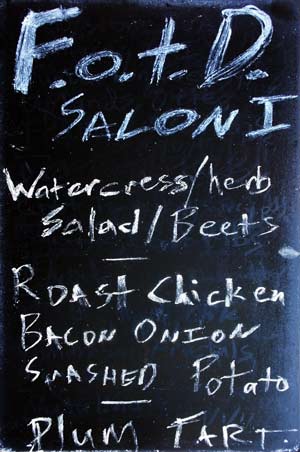 F.o.t.D.
SALON I
Watercress/herb
Salad/Beets
Roast Chicken
BACON ONION
SMASHED Potato
Plum TART.